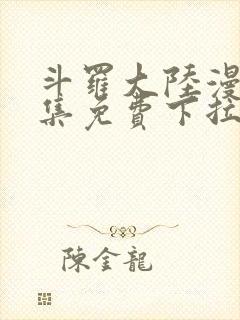 斗羅大陸漫
集免費下拉
陳金龍